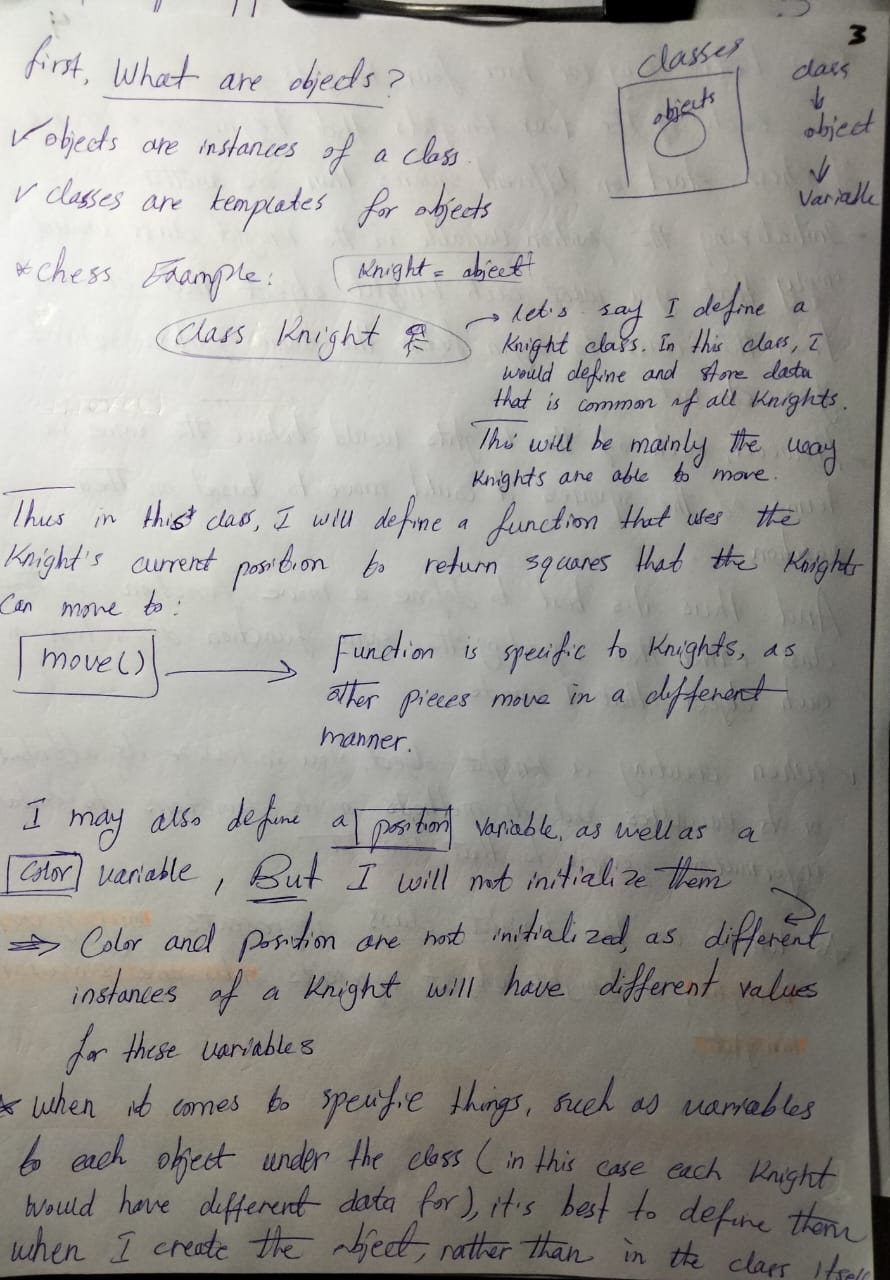 3
first, What are objects?
classes
objects
class
↓
object
↓
variable
✓ objects are instances of a class.
✓ classes are templates for objects
*chess Example: Knight = object
Class Knight
→ let's say I define a
Knight class. In this class, I
would define and store data
that is common of all Knights.
This will be mainly the way
Knights are able to move.
Thus in this class, I will define a function that uses the
Knight's current position to return squares that the Knights
Can move to:
move() → Function is specific to Knights, as
other pieces move in a different
manner.
I may also define a position variable, as well as a
Color variable, But I will not initialize them
⇒ Color and position are not initialized, as different
instances of a Knight will have different values
for these variables
* when it comes to specific things, such as variables
to each object under the class (in this case each Knight
would have different data for), it's best to define them
when I create the object, rather than in the class itself